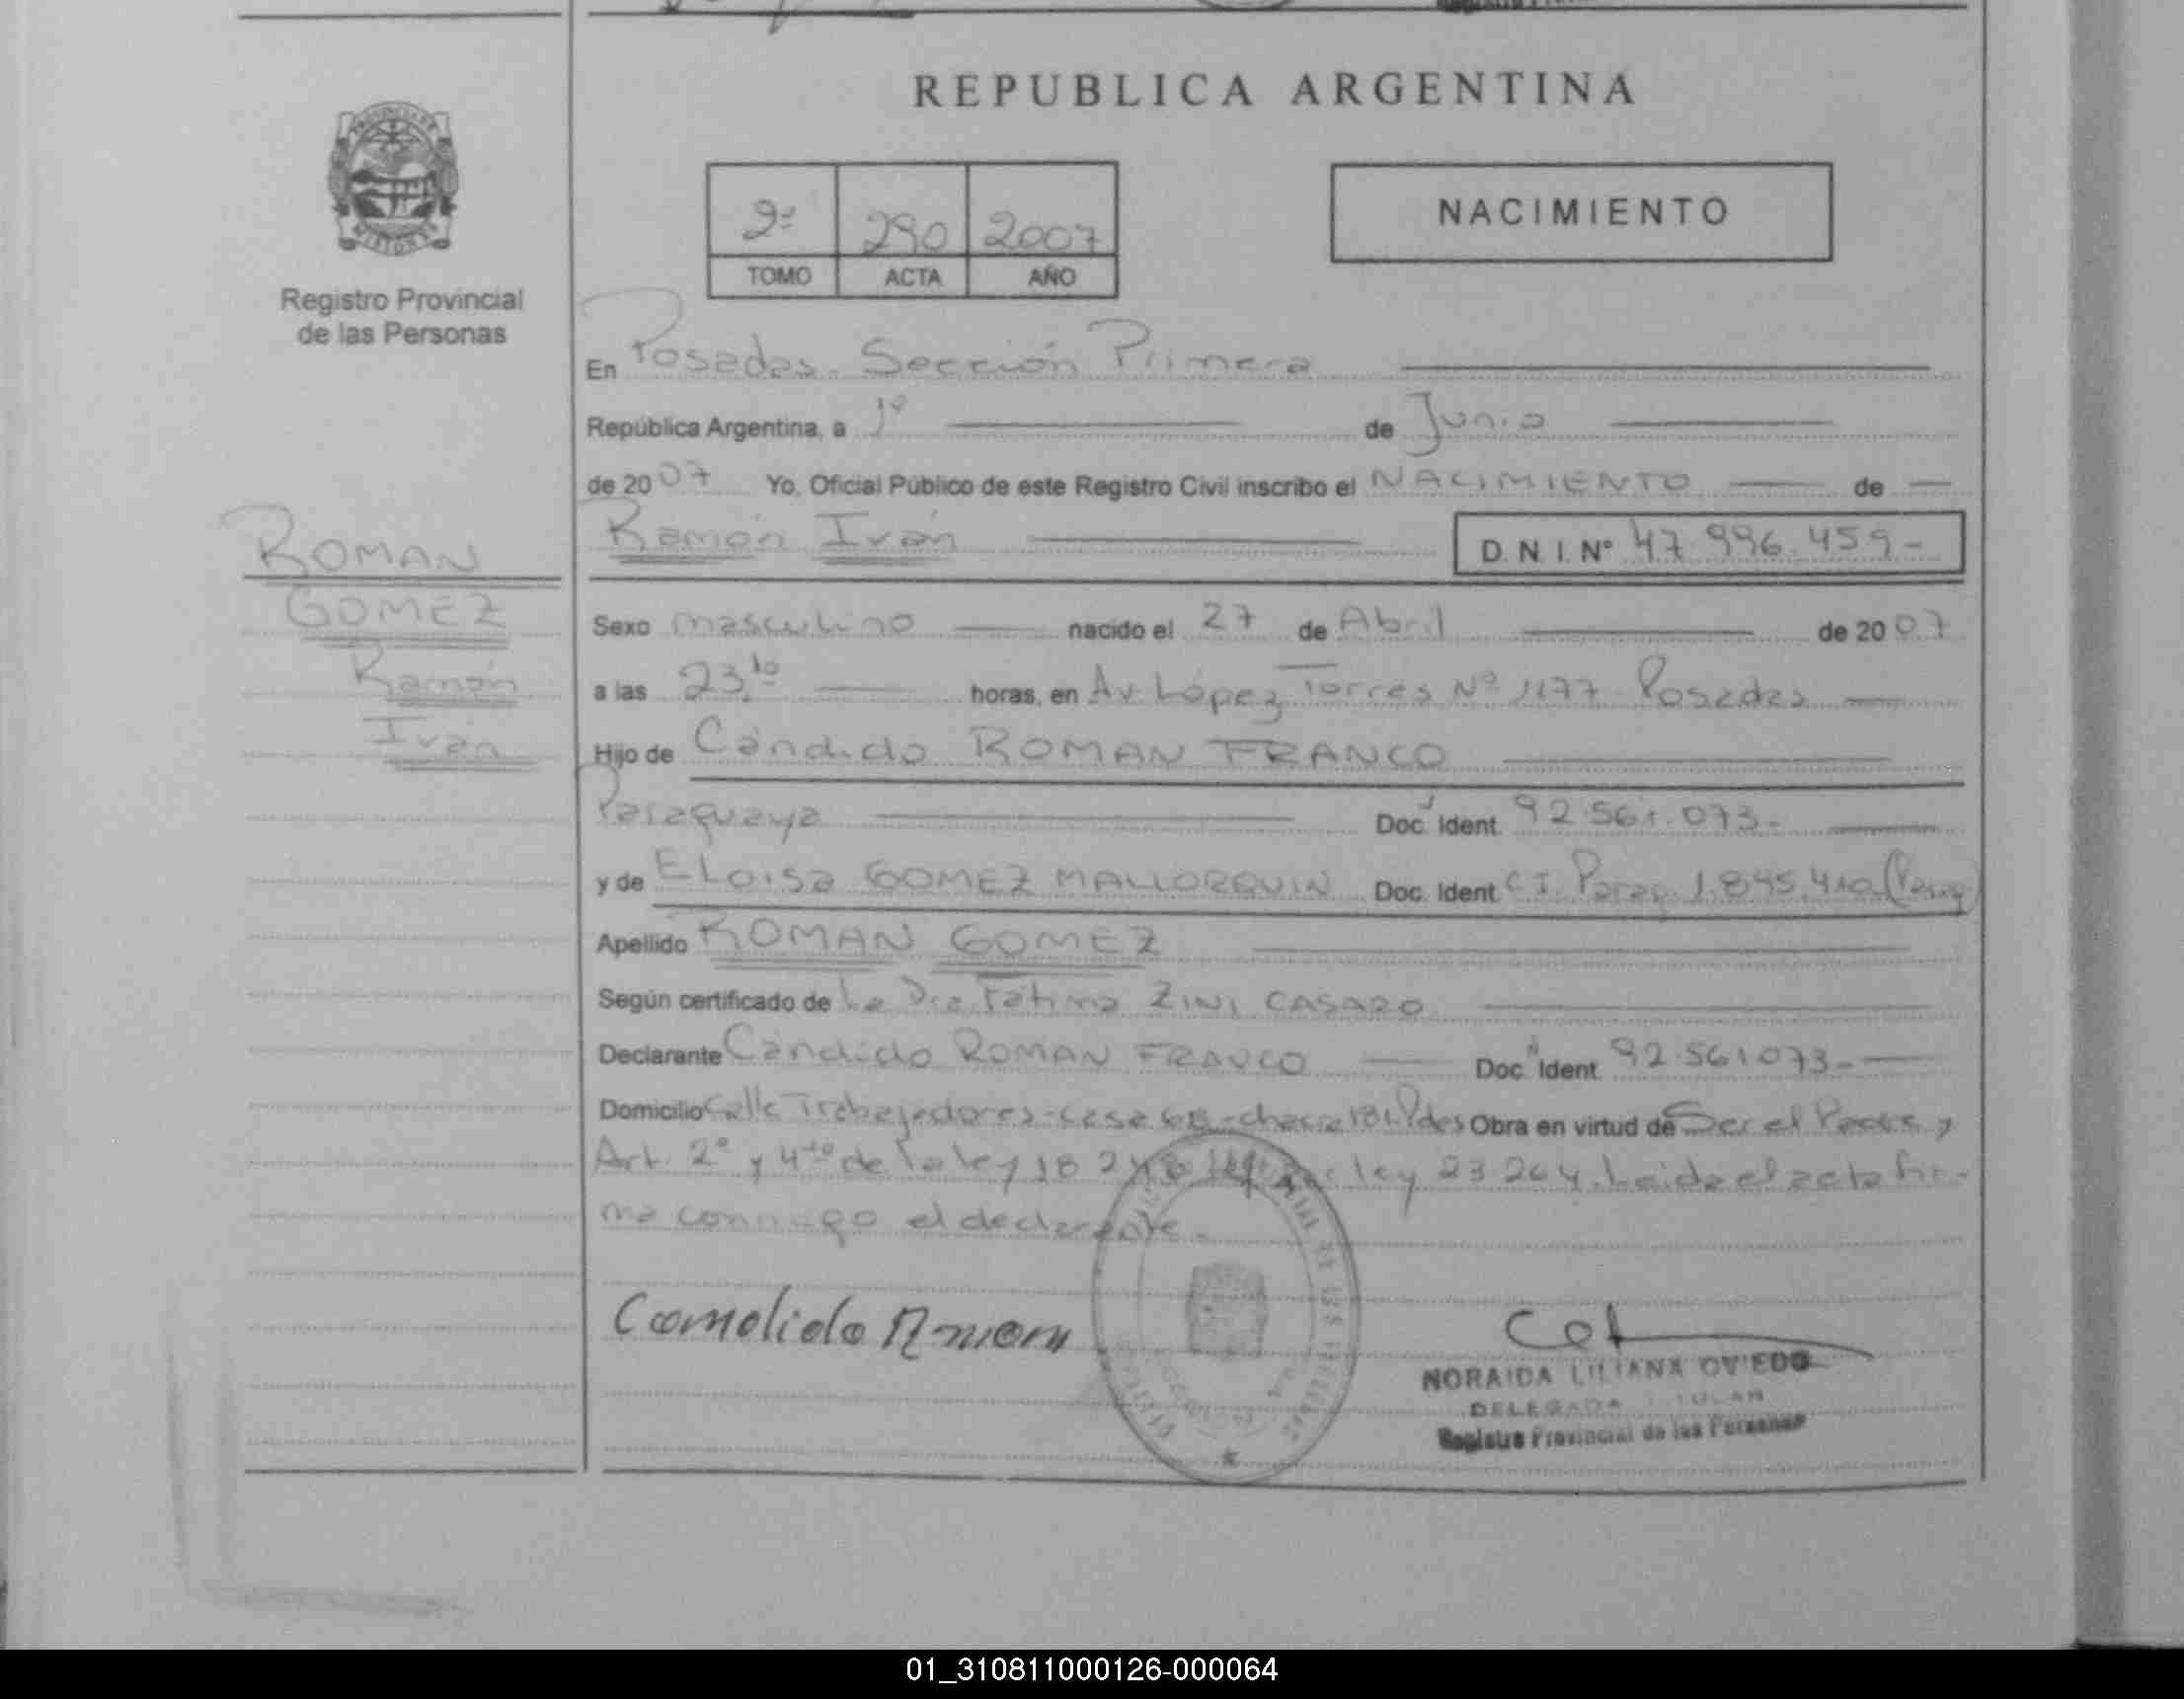 REPUBLICA ARGENTINA
2º 290 2007
TOMO ACTA AÑO
NACIMIENTO
Registro Provincial
de las Personas
ROMAN
GOMEZ
Ramón
Iván
En Posadas. Sección Primera
República Argentina, a 1º de Junio
de 2007 Yo, Oficial Público de este Registro Civil inscribo el NACIMIENTO de
Ramón Iván D.N.I. Nº 47.996.459-
Sexo masculino nacido el 27 de Abril de 2007
a las 23,10 horas, en Av. López Torres Nº 1177 Posadas
Hijo de Cándido ROMAN FRANCO
Paraguaya Doc. Ident. 92.561.073-
y de ELoisa GOMEZ MALLORQUIN Doc. Ident. C.I. Parag. 1.845.410 (Parag)
Apellido ROMAN GOMEZ
Según certificado de La Dra Fátima ZINI CASARO
Declarante Cándido ROMAN FRANCO Doc. Ident. 92.561073-
Domicilio Calle Trabajadores-casa -chacra 181-Pdas Obra en virtud de Ser el Padre y
Art. 2º y 4to de la ley 18 248 ley 23 264. Leida el acta fir-
ma conmigo el declarante.
Comolido Rmom
NORAIDA LILIANA OVIEDO
DELEGADA TITULAR
Registro Provincial de las Personas
01_310811000126-000064